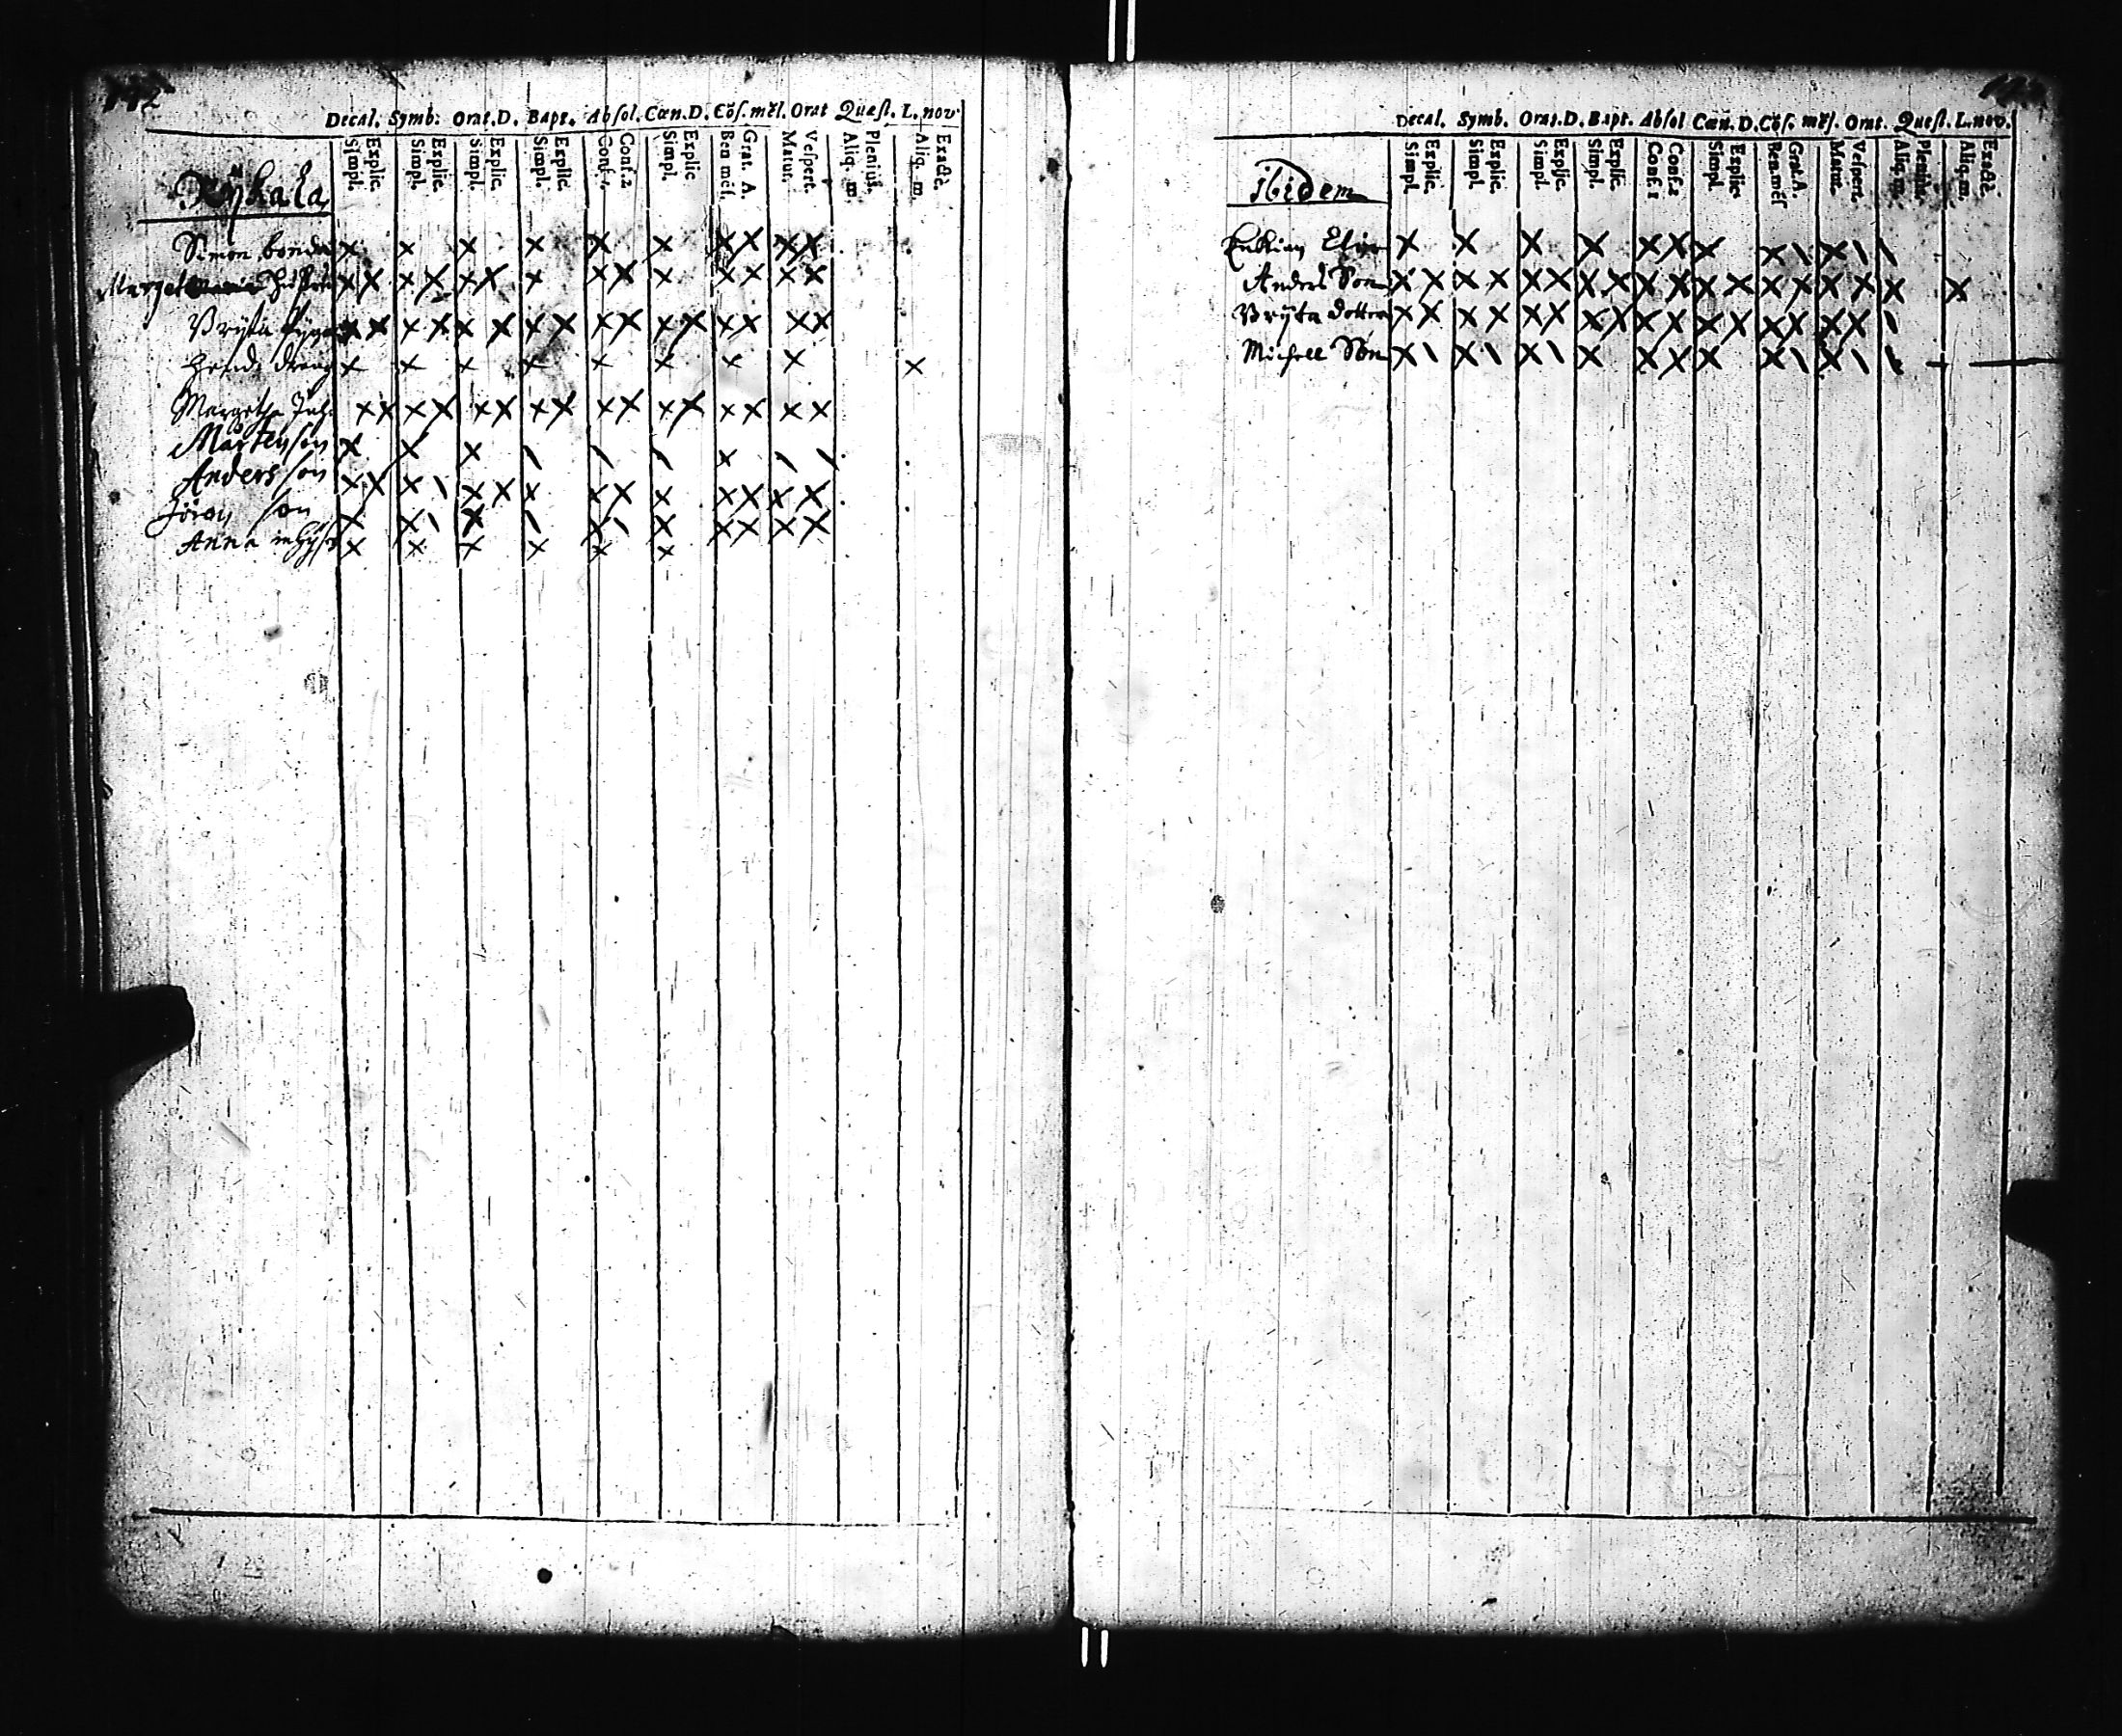 142
Decal. Symb. Orat. D. Bapt. Absol. Cœn. D. Cõs. mẽs. Orat Quæst. L. nov
Simpl. Explic. Simpl. Explic. Simpl. Explic. Simpl. Explic. Conf. 1 Conf. 2 Simpl. Explic Ben mẽs. Grat. A. Matut. Vespert. Aliq. m. Plenius. Aliq. m. Exactè.
Rÿkala
Simon bonde x x x x x x x x x x
Marget x x x x x x x x x x x x x
Brÿta x x x x x x x x x x x x x x x x
dreng x x x x x x x x x
Margetha x x x x x x x x x x x x x x x x
Mårten son x x x \ \ \ x \ \
Anders son x x x \ x x x x x x x x x x
Jöran son x x \ x \ x \ x x x x x
Anna x x x x x x
Decal. Symb. Orat. D. Bapt. Absol Cœn. D. Cõs. mẽs. Orat. Quæst. L. nov.
Simpl. Explic. Simpl. Explic. Simpl. Explic. Simpl. Explic. Conf. 1 Conf. 2 Simpl. Explic. Ben. mẽs Grat. A. Matut. Vespert. Aliq. m. Plenius. Aliq. m. Exactè.
ibidem
x x x x x x x x \ x \ \
Anders Son x x x x x x x x x x x x x x x x x x
Brÿta dotter x x x x x x x x x x x x x x x x \
Michell Son x \ x \ x \ x x x x x \ x \ \